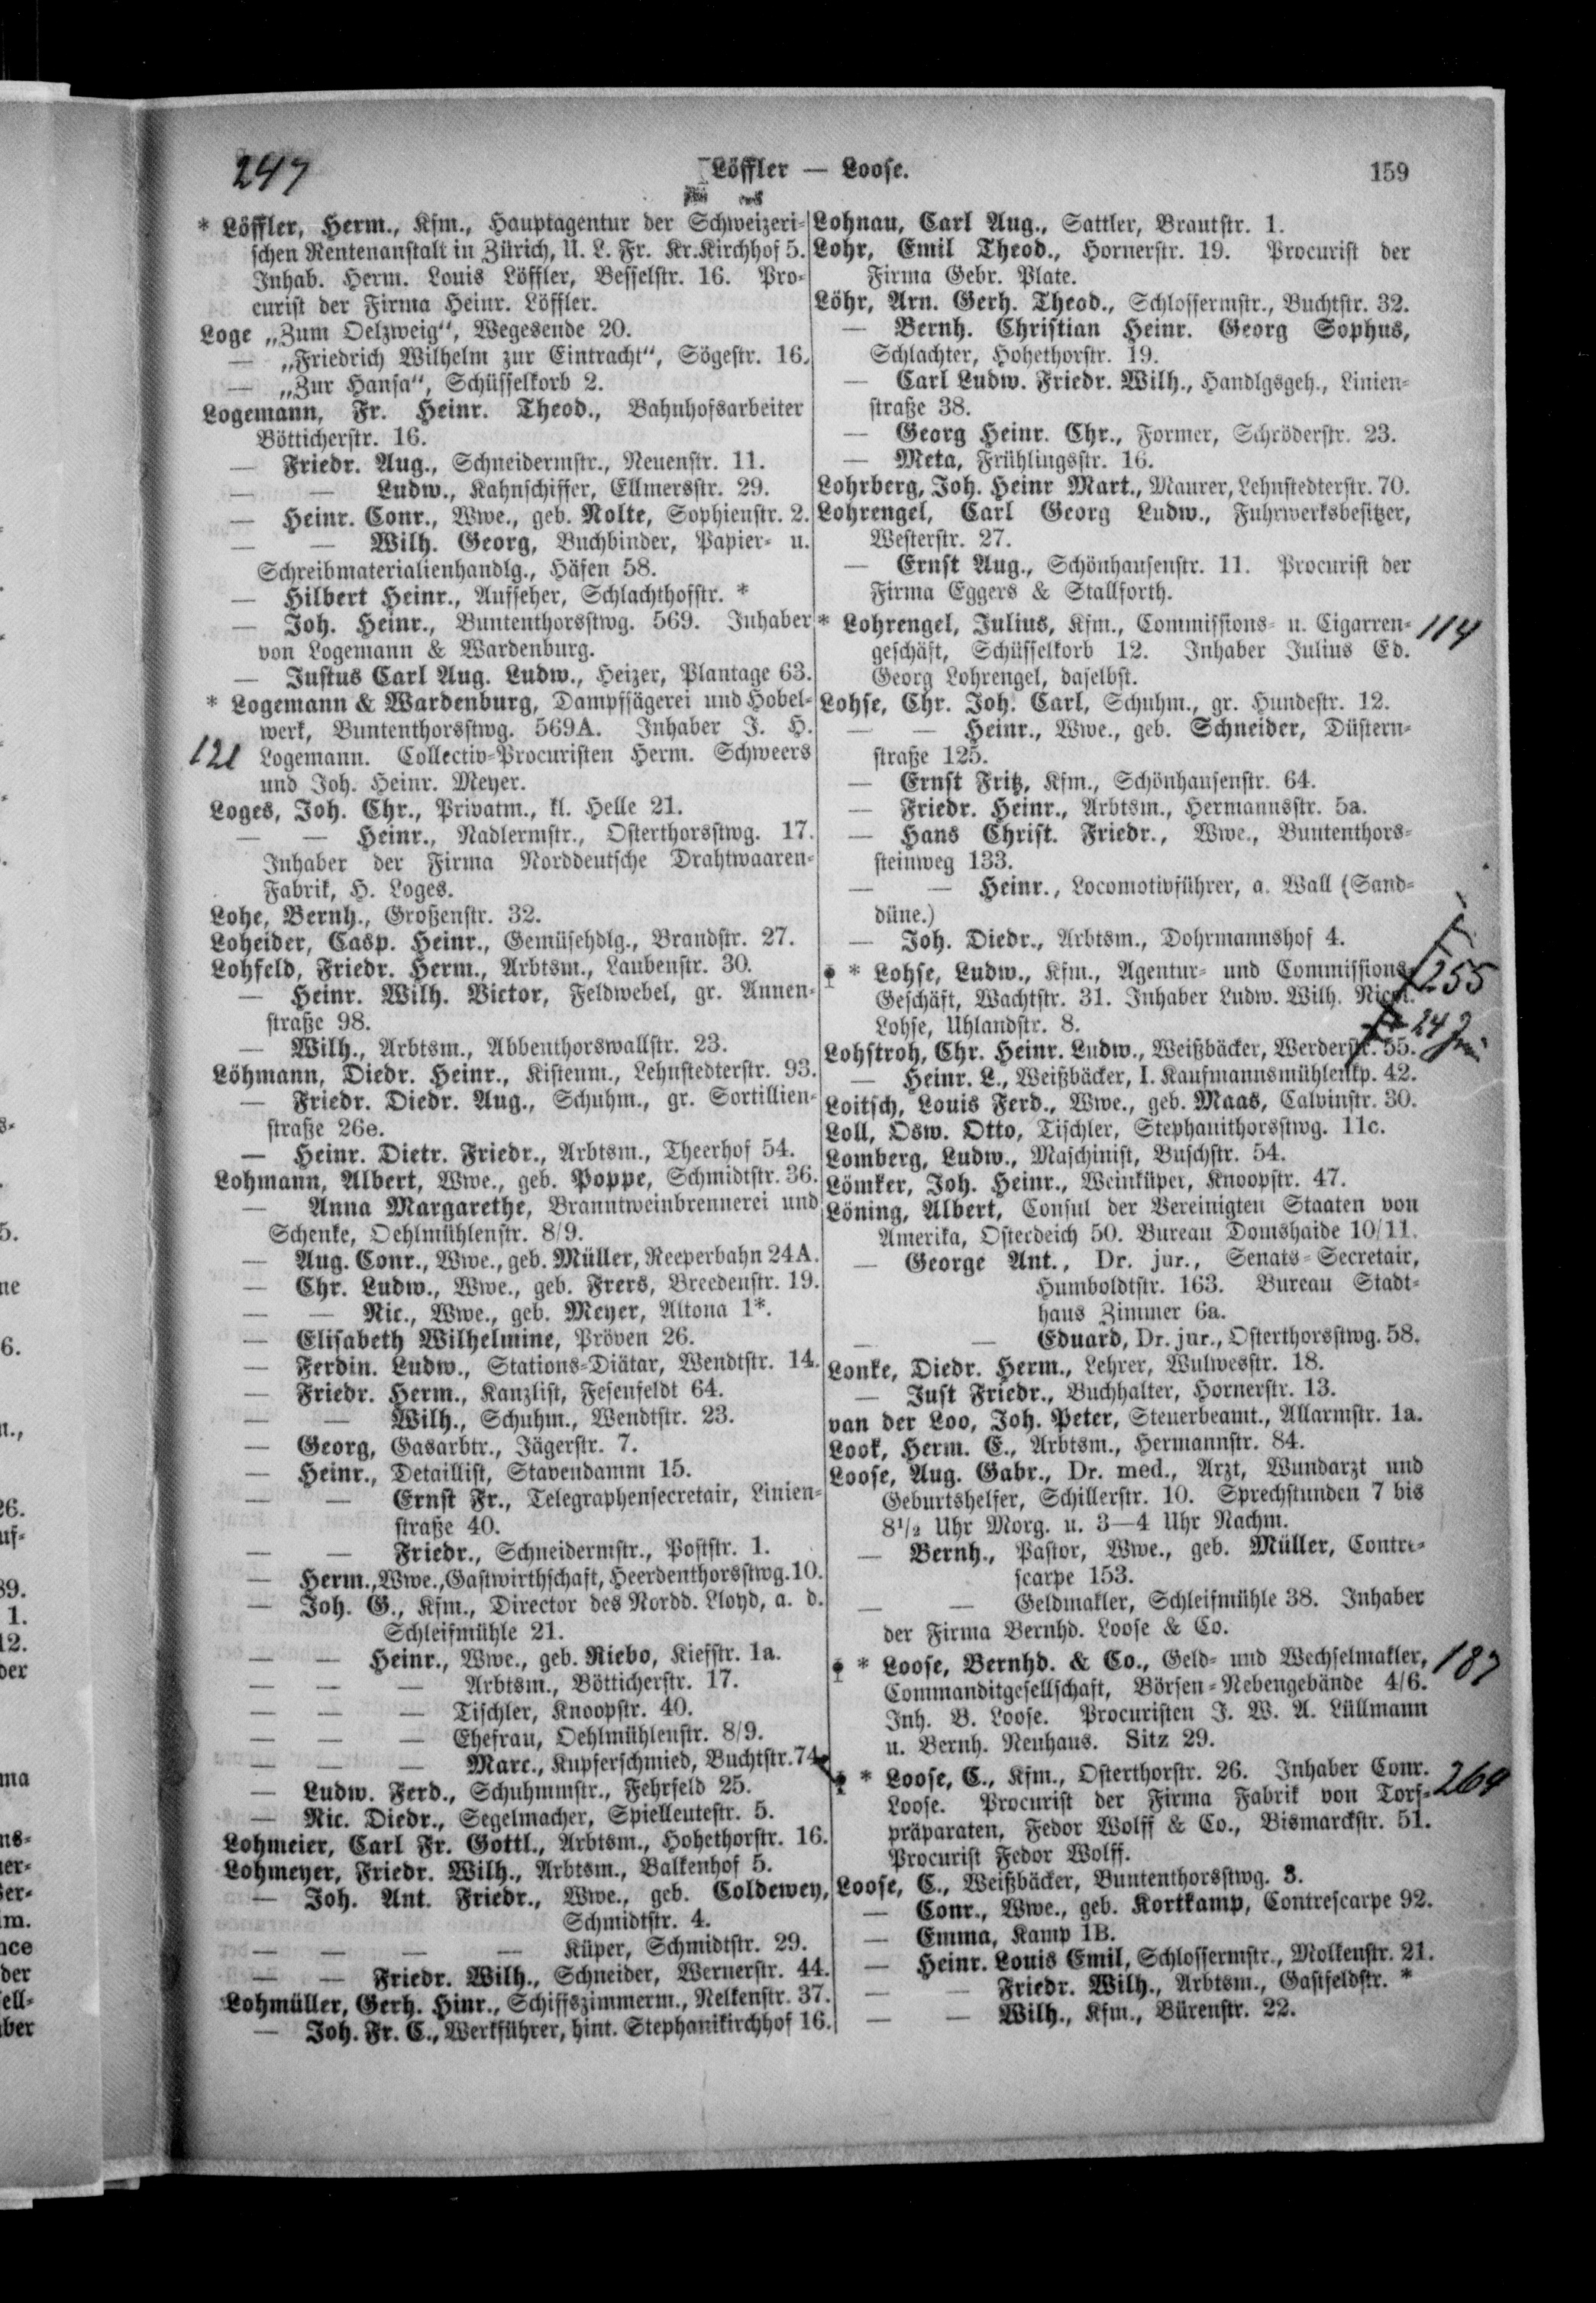 247
Löffler — Loose.
159
* Löffler, Herm., Kfm., Hauptagentur der Schweizeri-
schen Rentenanstalt in Zürich, U. L. Fr. Kr.Kirchhof 5.
Inhab. Herm. Louis Löffler, Besselstr. 16. Pro-
curist der Firma Heinr. Löffler.
Loge „Zum Oelzweig“, Wegesende 20.
— „Friedrich Wilhelm zur Eintracht“, Sögestr. 16.
— „Zur Hansa“, Schüsselkorb 2.
Logemann, Fr. Heinr. Theod., Bahnhofsarbeiter
Bötticherstr. 16.
— Friedr. Aug., Schneidermstr., Neuenstr. 11.
— — Ludw., Kahnschiffer, Ellmersstr. 29.
— Heinr. Conr., Wwe., geb. Nolte, Sophienstr. 2.
— — Wilh. Georg, Buchbinder, Papier- u.
Schreibmaterialienhandlg., Häfen 58.
— Hilbert Heinr., Aufseher, Schlachthofstr. *
— Joh. Heinr., Buntenthorsstwg. 569. Inhaber
von Logemann & Wardenburg.
— Justus Carl Aug. Ludw., Heizer, Plantage 63.
* Logemann & Wardenburg, Dampfsägerei und Hobel-
werk, Buntenthorsstwg. 569A. Inhaber J. H.
121 Logemann. Collectiv-Procuristen Herm. Schweers
und Joh. Heinr. Meyer.
Loges, Joh. Chr., Privatm., kl. Helle 21.
— — Heinr., Nadlermstr., Osterthorsstwg. 17.
Inhaber der Firma Norddeutsche Drahtwaaren-
Fabrik, H. Loges.
Lohe, Bernh., Großenstr. 32.
Loheider, Casp. Heinr., Gemüsehdlg., Brandstr. 27.
Lohfeld, Friedr. Herm., Arbtsm., Laubenstr. 30.
— Heinr. Wilh. Victor, Feldwebel, gr. Annen-
straße 98.
— Wilh., Arbtsm., Abbenthorswallstr. 23.
Löhmann, Diedr. Heinr., Kistenm., Lehnstedterstr. 93.
— Friedr. Diedr. Aug., Schuhm., gr. Sortillien-
straße 26e.
— Heinr. Dietr. Friedr., Arbtsm., Theerhof 54.
Lohmann, Albert, Wwe., geb. Poppe, Schmidtstr. 36.
— Anna Margarethe, Branntweinbrennerei und
Schenke, Oehlmühlenstr. 8/9.
— Aug. Conr., Wwe., geb. Müller, Reeperbahn 24A.
— Chr. Ludw., Wwe., geb. Frers, Breedenstr. 19.
— — Nic., Wwe., geb. Meyer, Altona 1*.
— Elisabeth Wilhelmine, Pröven 26.
— Ferdin. Ludw., Stations-Diätar, Wendtstr. 14.
— Friedr. Herm., Kanzlist, Fesenfeldt 64.
— — Wilh., Schuhm., Wendtstr. 23.
— Georg, Gasarbtr., Jägerstr. 7.
— Heinr., Detaillist, Stavendamm 15.
— — Ernst Fr., Telegraphensecretair, Linien-
straße 40.
— — Friedr., Schneidermstr., Poststr. 1.
— Herm., Wwe., Gastwirthschaft, Heerdenthorsstwg. 10.
— Joh. G., Kfm., Director des Nordd. Lloyd, a. d.
Schleifmühle 21.
— — Heinr., Wwe., geb. Niebo, Kiefstr. 1a.
— — — Arbtsm., Bötticherstr. 17.
— — — Tischler, Knoopstr. 40.
— — — Ehefrau, Oehlmühlenstr. 8/9.
— — — Marc., Kupferschmied, Buchtstr. 74
— Ludw. Ferd., Schuhmmstr., Fehrfeld 25.
— Nic. Diedr., Segelmacher, Spielleutestr. 5.
Lohmeier, Carl Fr. Gottl., Arbtsm., Hohethorstr. 16.
Lohmeyer, Friedr. Wilh., Arbtsm., Balkenhof 5.
— Joh. Ant. Friedr., Wwe., geb. Coldewey,
Schmidtstr. 4.
— — — — Küper, Schmidtstr. 29.
— — Friedr. Wilh., Schneider, Wernerstr. 44.
Lohmüller, Gerh. Hinr., Schiffszimmerm., Nelkenstr. 37.
— Joh. Fr. C., Werkführer, hint. Stephanikirchhof 16.
Lohnau, Carl Aug., Sattler, Brautstr. 1.
Lohr, Emil Theod., Hornerstr. 19. Procurist der
Firma Gebr. Plate.
Löhr, Arn. Gerh. Theod., Schlossermstr., Buchtstr. 32.
— Bernh. Christian Heinr. Georg Sophus,
Schlachter, Hohethorstr. 19.
— Carl Ludw. Friedr. Wilh., Handlgsgeh., Linien-
straße 38.
— Georg Heinr. Chr., Former, Schröderstr. 23.
— Meta, Frühlingsstr. 16.
Lohrberg, Joh. Heinr Mart., Maurer, Lehnstedterstr. 70.
Lohrengel, Carl Georg Ludw., Fuhrwerksbesitzer,
Westerstr. 27.
— Ernst Aug., Schönhausenstr. 11. Procurist der
Firma Eggers & Stallforth.
* Lohrengel, Julius, Kfm., Commissions- u. Cigarren- 114
geschäft, Schüsselkorb 12. Inhaber Julius Ed.
Georg Lohrengel, daselbst.
Lohse, Chr. Joh. Carl, Schuhm., gr. Hundestr. 12.
— — Heinr., Wwe., geb. Schneider, Düstern-
straße 125.
— Ernst Fritz, Kfm., Schönhausenstr. 64.
— Friedr. Heinr., Arbtsm., Hermannsstr. 5a.
— Hans Christ. Friedr., Wwe., Buntenthors-
steinweg 133.
— — Heinr., Locomotivführer, a. Wall (Sand-
düne.)
— Joh. Diedr., Arbtsm., Dohrmannshof 4.
* Lohse, Ludw., Kfm., Agentur- und Commissions- 255
Geschäft, Wachtstr. 31. Inhaber Ludw. Wilh.
Lohse, Uhlandstr. 8. 24
Lohstroh, Chr. Heinr. Ludw., Weißbäcker, Werderstr. 55.
— Heinr. L., Weißbäcker, I. Kaufmannsmühlenkp. 42.
Loitsch, Louis Ferd., Wwe., geb. Maas, Calvinstr. 30.
Loll, Osw. Otto, Tischler, Stephanithorsstwg. 11c.
Lomberg, Ludw., Maschinist, Buschstr. 54.
Lömker, Joh. Heinr., Weinküper, Knoopstr. 47.
Löning, Albert, Consul der Vereinigten Staaten von
Amerika, Osterdeich 50. Bureau Domshaide 10/11.
— George Ant., Dr. jur., Senats-Secretair,
Humboldtstr. 163. Bureau Stadt-
haus Zimmer 6a.
— — Eduard, Dr. jur., Osterthorsstwg. 58.
Lonke, Diedr. Herm., Lehrer, Wulwesstr. 18.
— Just Friedr., Buchhalter, Hornerstr. 13.
van der Loo, Joh. Peter, Steuerbeamt., Allarmstr. 1a.
Look, Herm. E., Arbtsm., Hermannstr. 84.
Loose, Aug. Gabr., Dr. med., Arzt, Wundarzt und
Geburtshelfer, Schillerstr. 10. Sprechstunden 7 bis
8½ Uhr Morg. u. 3—4 Uhr Nachm.
— Bernh., Pastor, Wwe., geb. Müller, Contre-
scarpe 153.
— — Geldmakler, Schleifmühle 38. Inhaber
der Firma Bernhd. Loose & Co.
* Loose, Bernhd. & Co., Geld- und Wechselmakler, 187
Commanditgesellschaft, Börsen-Nebengebände 4/6.
Inh. B. Loose. Procuristen J. W. A. Lüllmann
u. Bernh. Neuhaus. Sitz 29.
* Loose, C., Kfm., Osterthorstr. 26. Inhaber Conr.
Loose. Procurist der Firma Fabrik von Torf- 269
präparaten, Fedor Wolff & Co., Bismarckstr. 51.
Procurist Fedor Wolff.
Loose, C., Weißbäcker, Buntenthorsstwg. 3.
— Conr., Wwe., geb. Kortkamp, Contrescarpe 92.
— Emma, Kamp 1B.
— Heinr. Louis Emil, Schlossermstr., Molkenstr. 21.
— — Friedr. Wilh., Arbtsm., Gastfeldstr. *
— — Wilh., Kfm., Bürenstr. 22.